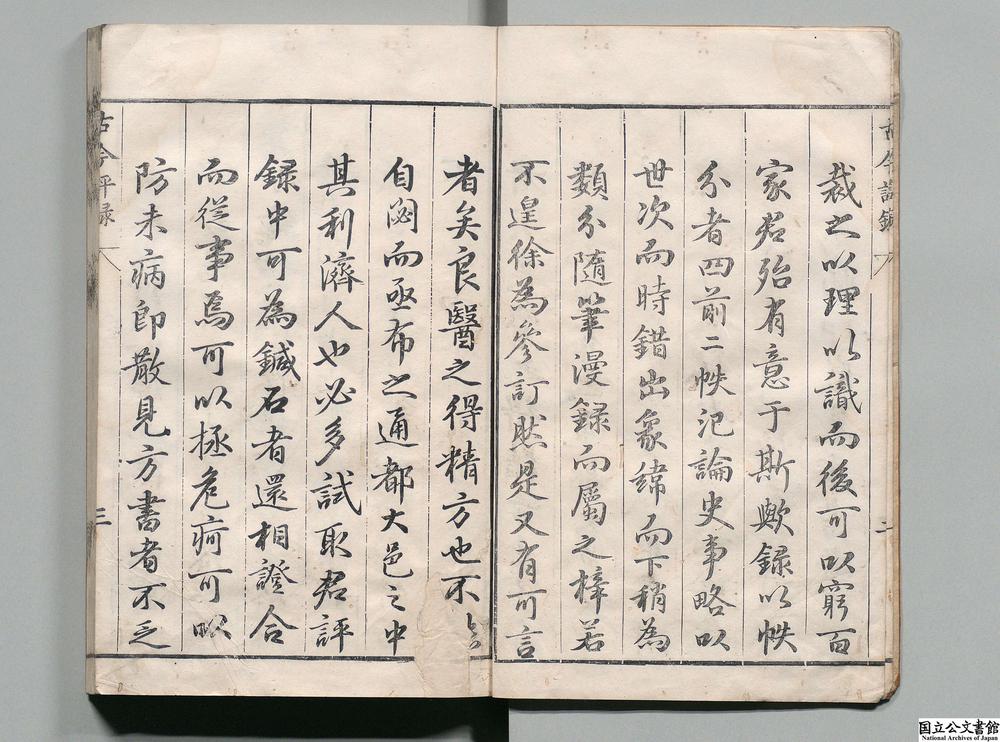 裁之以理以識而後可以窮百
家君殆有意于斯歟錄以帙
分者四前二帙汜論史事略以
世次而時錯出象緯而下稍為
類分隨筆漫錄而屬之梓若
不遑徐為參訂然是又有可言
者矣良醫之得精方也不
自閟而亟布之通都大邑之中
其利濟人也必多試取君評
錄中可為鍼石者還相證合
而從事焉可以拯危疴可以
防未病即散見方書者不乏
古今評錄
二
古今評录
三
国立公文書館
National Archives of Japan